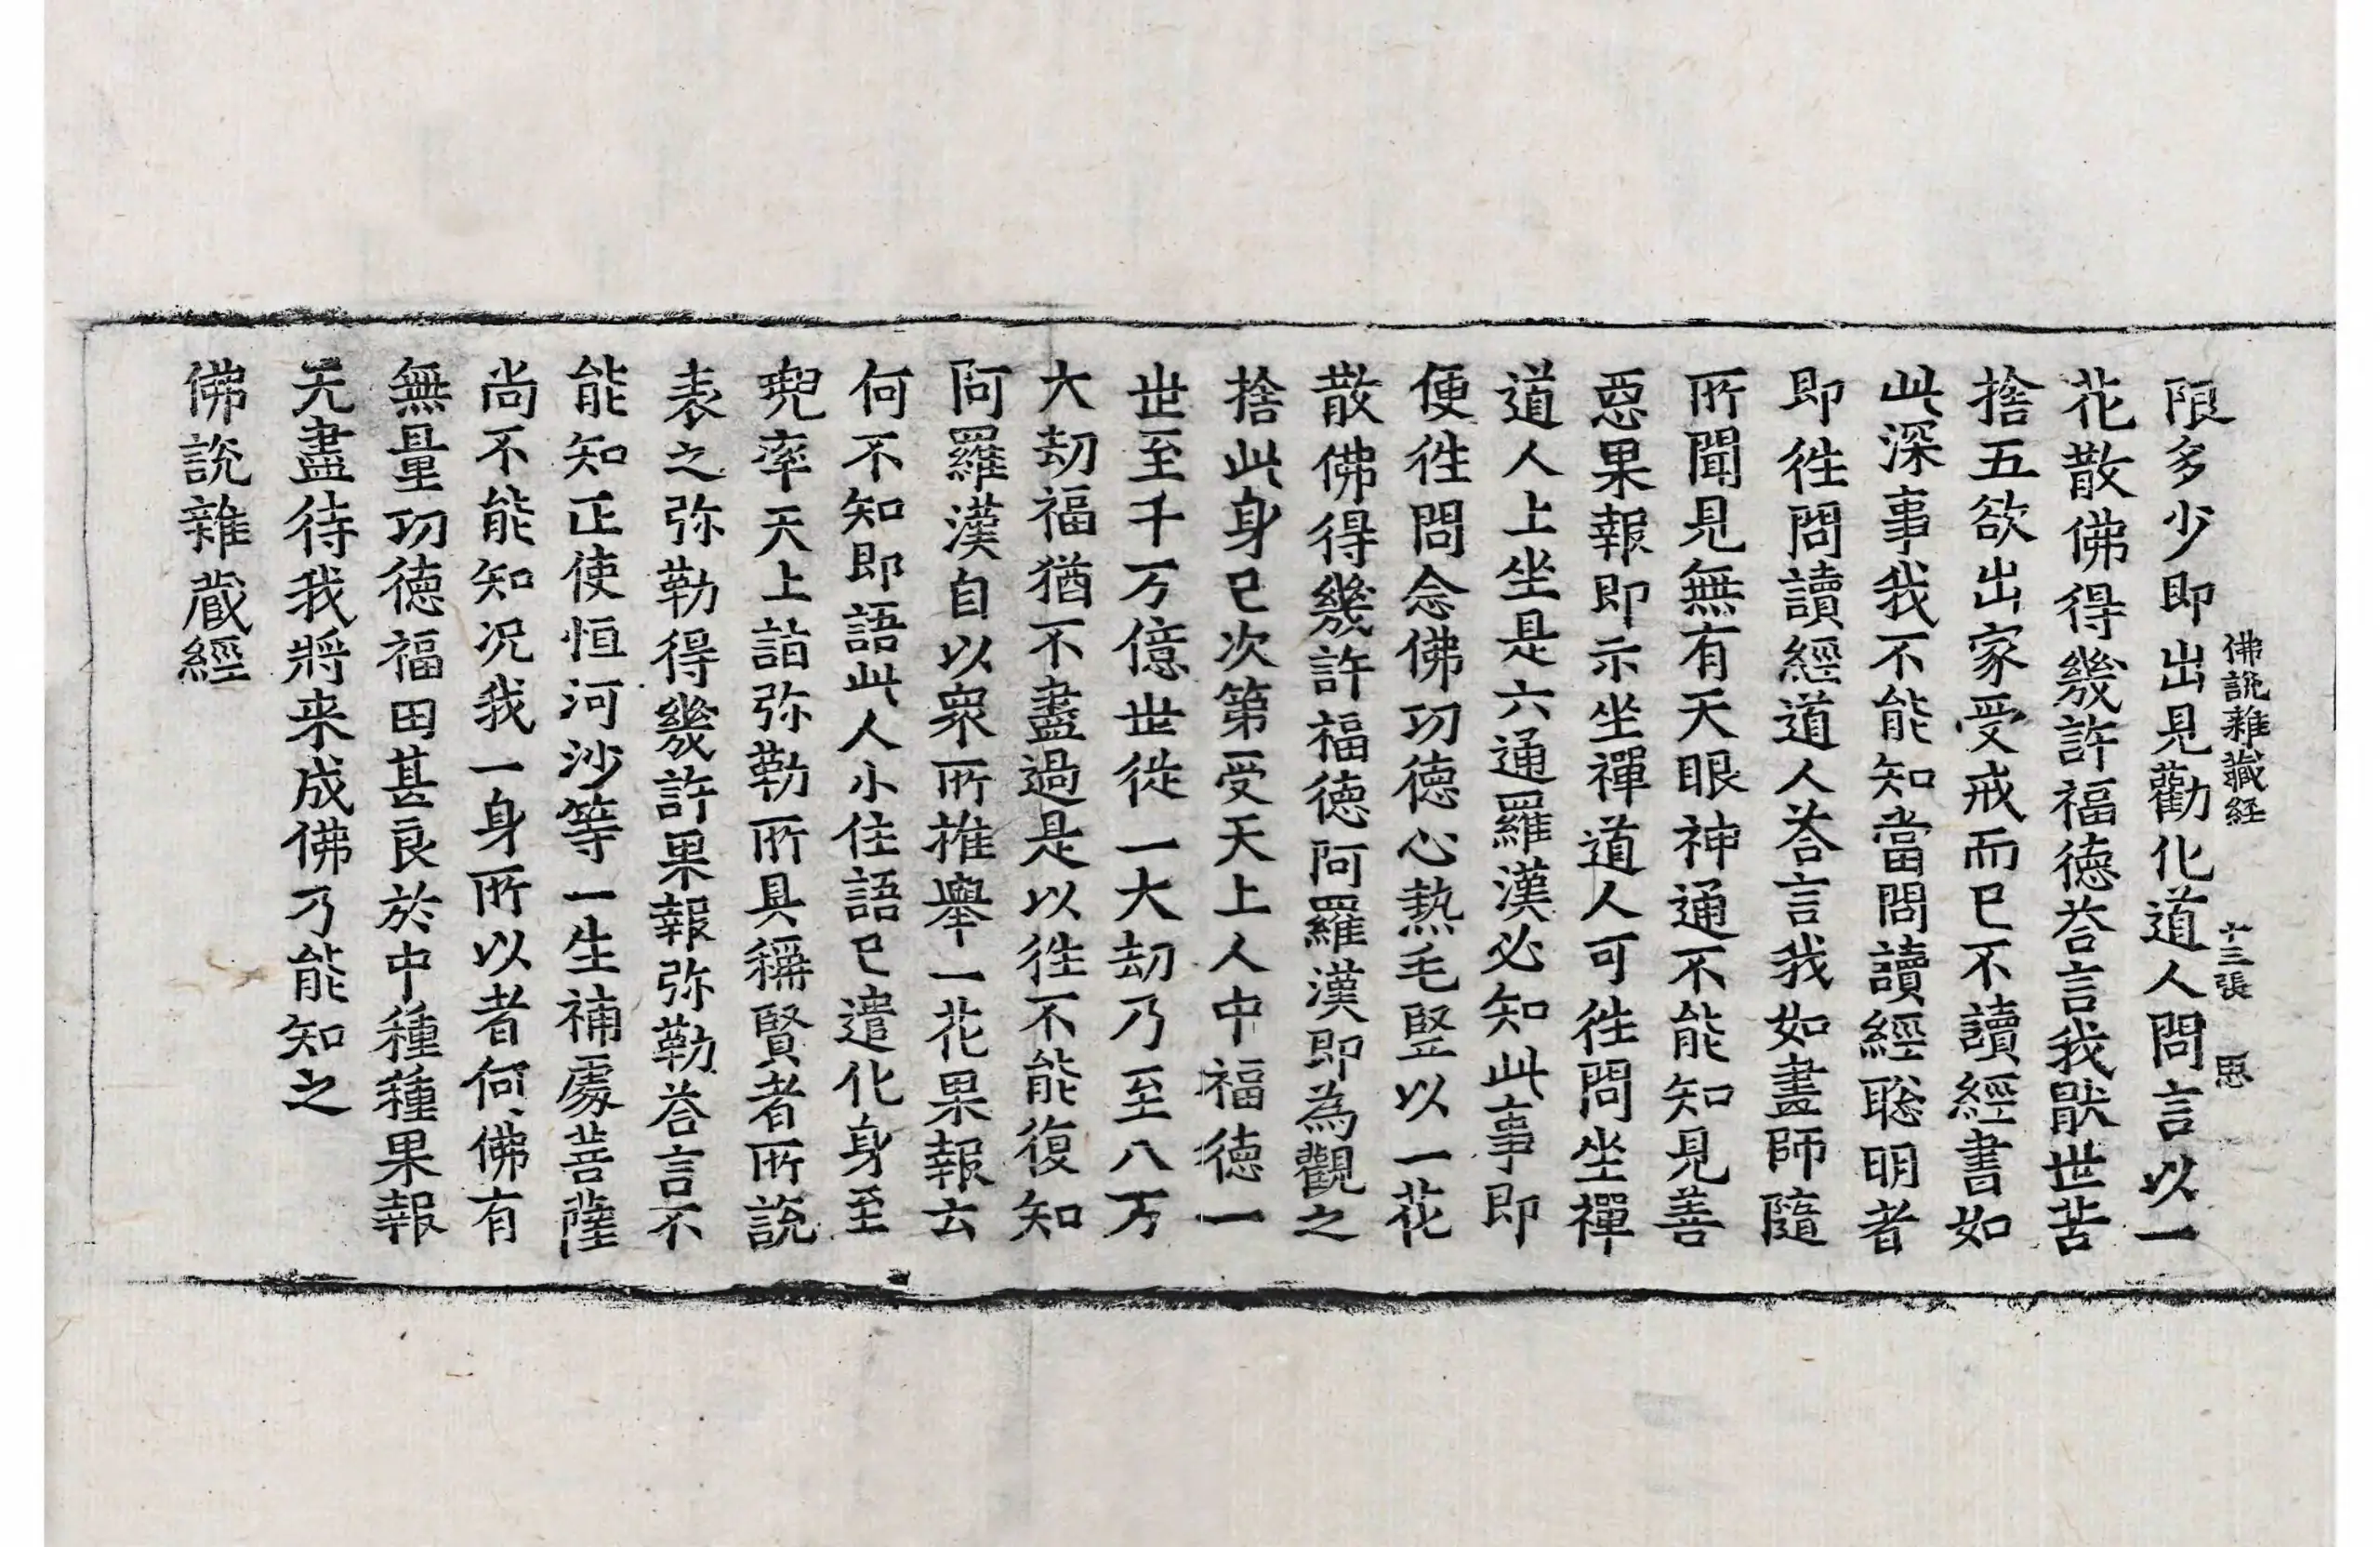 佛說雜藏経　十三張　思
限多少即出見勸化道人問言以一
花散佛得幾許福德荅言我猒世苦
捨五欲出家受戒而已不讀經書如
此深事我不能知當問讀經聡明者
即徃問讀經道人荅言我如盡師隨
所聞見無有天眼神通不能知見善
惡果報即示坐禪道人可徃問坐禪
道人上坐是六通羅漢必知此事即
便徃問念佛功德心熱毛竪以一花
散佛得幾許福德阿羅漢即為觀之
捨此身已次第受天上人中福德一
世至千万億世従一大劫乃至八万
大劫福猶不盡過是以徃不能復知
阿羅漢自以衆所推舉一花果報云
何不知即語此人小住語已遣化身至
兜率天上詣弥勒所具稱賢者所說
表之弥勒得幾許果報弥勒荅言不
能知正使恒河沙等一生補處菩薩
尚不能知况我一身所以者何佛有
無量功德福田甚良於中種種果報
无盡待我將来成佛乃能知之
佛說雜蔵經